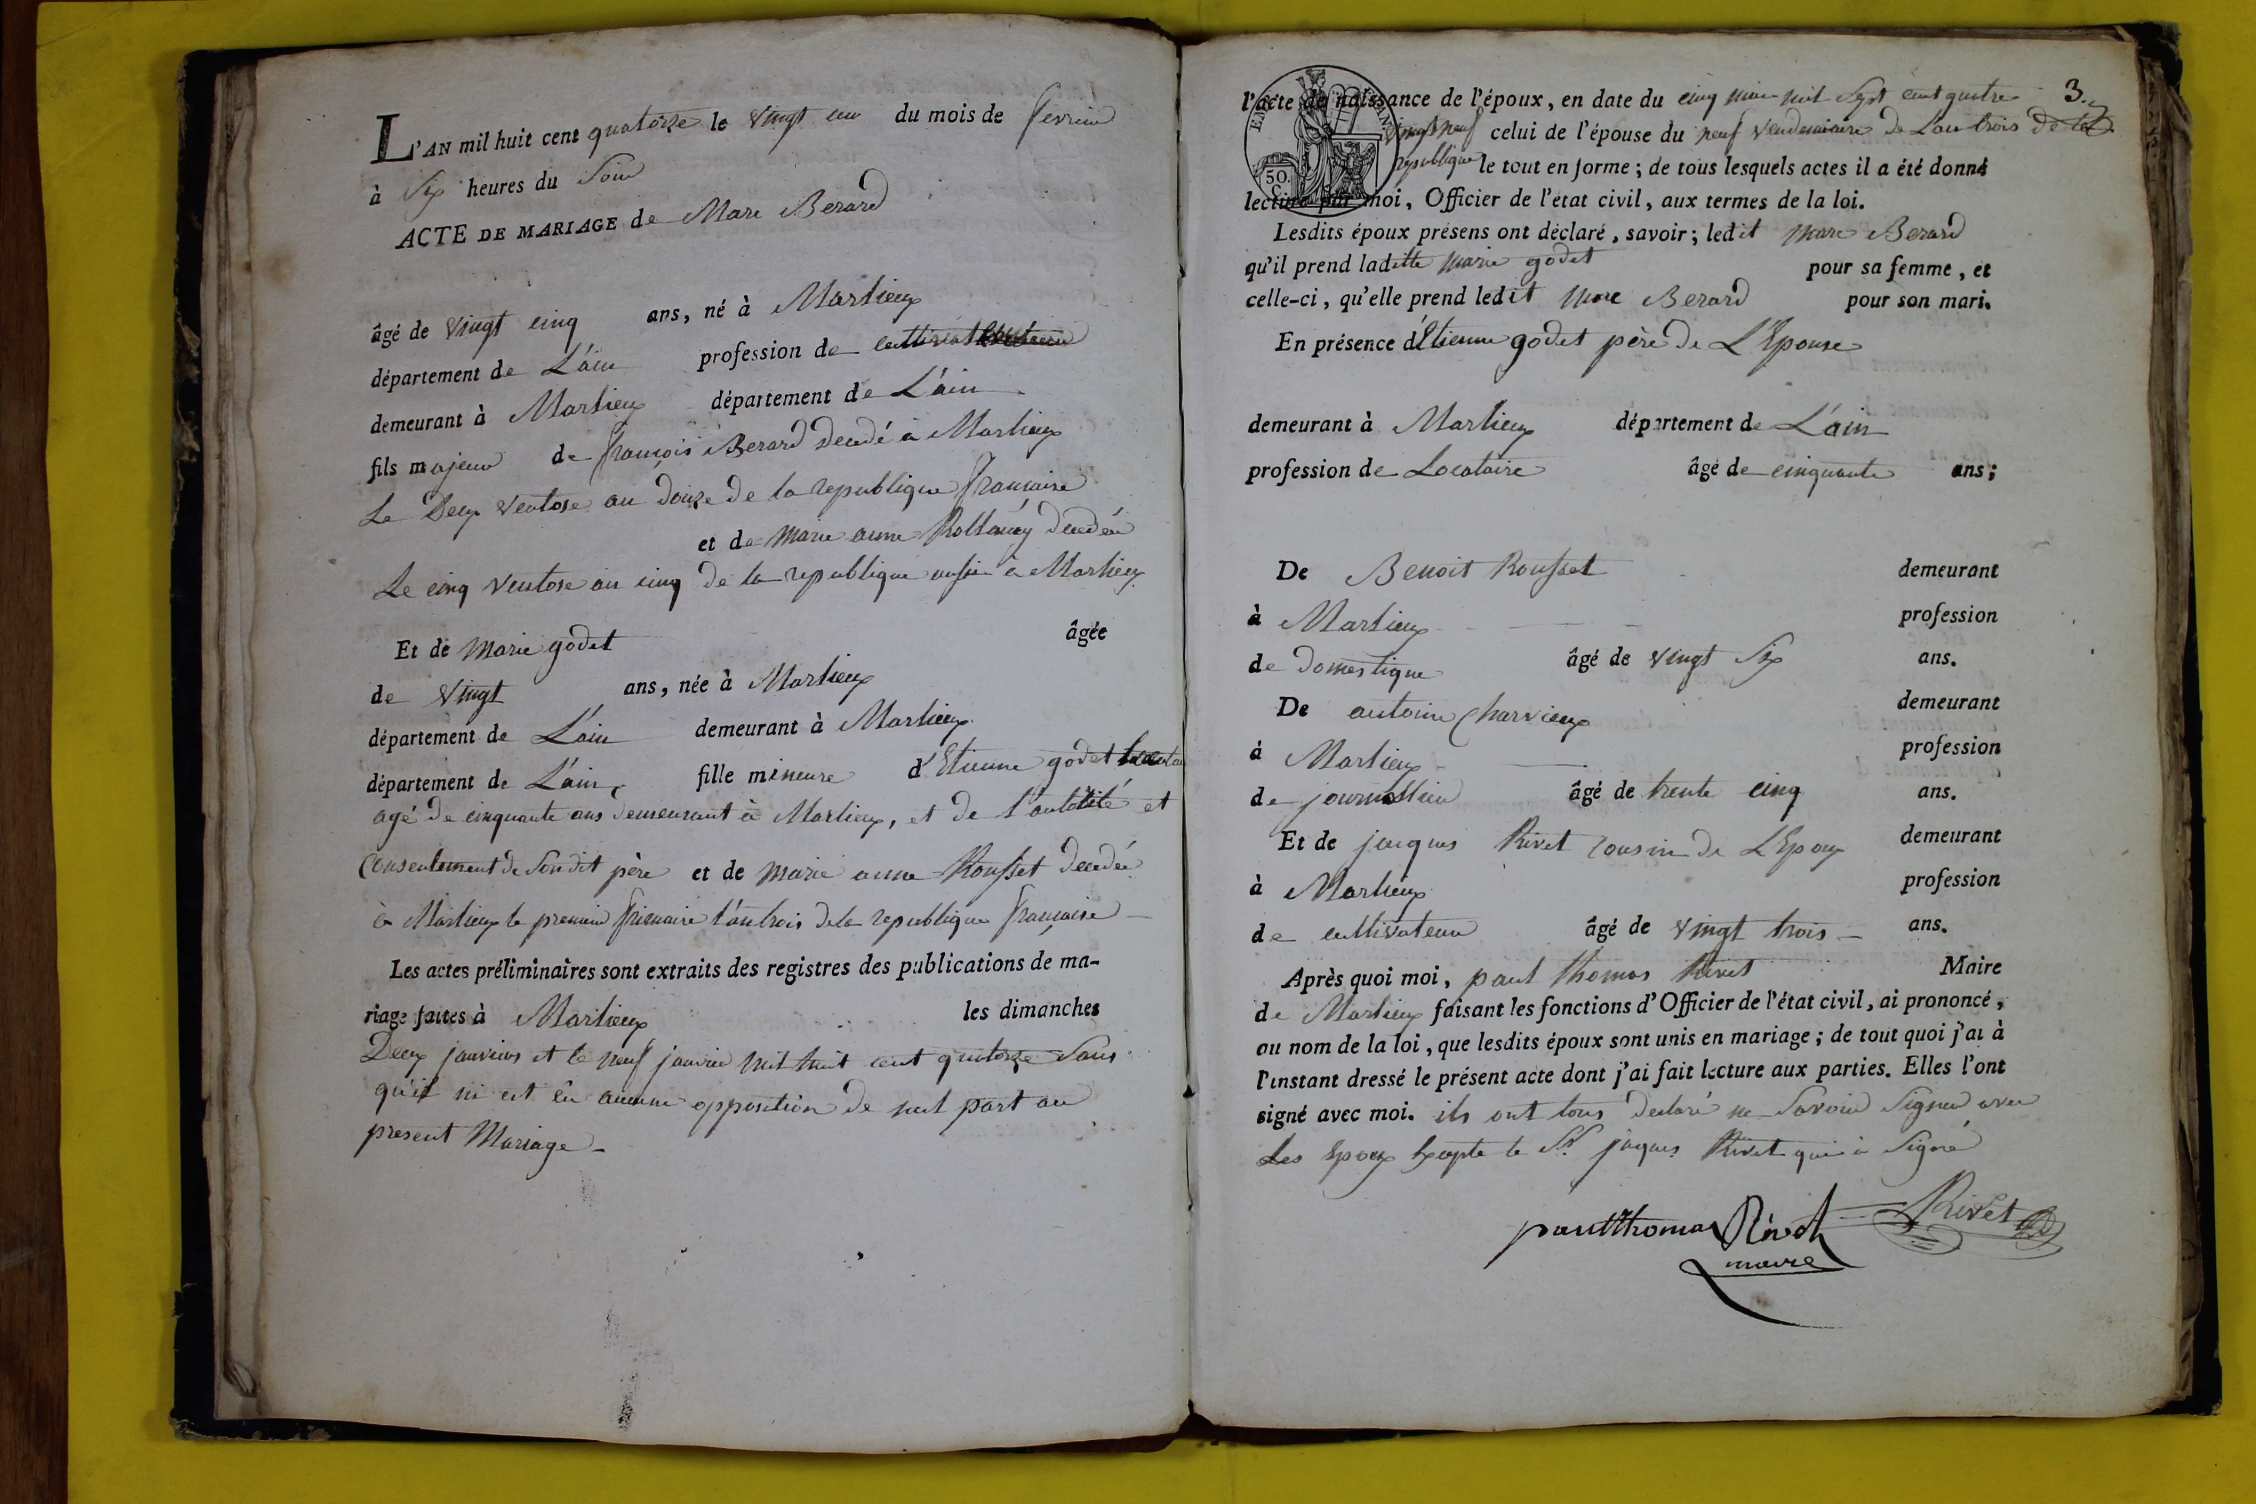 L'AN mil huit cent quatorze le vingt un du mois de fevrier
à Six heures du Soir
ACTE DE MARIAGE de Marc Berard
âgé de vingt cinq ans, né à Marlieux
département de L'ain profession de
demeurant à Marlieux département de L'ain
fils majeur de françois Berard decedé à Marlieux
Le Deux ventose an douze de la republique francaise
et de Marie anne decedée
Le cinq ventose an cinq de la republique aussi a Marlieux
Et de Marie godet âgée
de vingt ans, née à Marlieux
département de L'ain demeurant à Marlieux
département de L'ain, fille mineure d'Etienne godet
agé de cinquante ans demeurant à Marlieux, et de l'autorité et
consentement de Son dit père et de marie anne Rousset decedée
à Marlieux le premier frimaire l'an trois de la republique francaise
Les actes préliminaires sont extraits des registres des publications de ma-
riage faites à Marlieux les dimanches
Deux janviers et le neuf janvier mil huit cent quatorze Sans
qu'il ni eut eu aucune opposition de nul part au
present Mariage
3.
l'acte de naissance de l'époux, en date du cinq mil Sept cent quatre
vingt neuf celui de l'épouse du neuf vendemiaire de L'an trois de la
republique le tout en forme; de tous lesquels actes il a été donné
lecture par moi, Officier de l'état civil, aux termes de la loi.
EM
50.
C.
Lesdits époux présens ont déclaré, savoir; ledit Marc Berard
qu'il prend laditte marie godet pour sa femme, et
celle-ci, qu'elle prend ledit Marc Berard pour son mari.
En présence d'Etienne godet père de L'Epouse
demeurant à Marlieux département de L'ain
profession de Locataire âgé de cinquante ans;
De Benoit Rousset demeurant
à Marlieux profession
de domestique âgé de vingt Six ans.
De antoine Charvieux demeurant
à Marlieux profession
de journallier âgé de trente cinq ans.
Et de jacques Rivet cousin de L'Epoux demeurant
à Marlieux profession
de cultivateur âgé de vingt trois ans.
Après quoi moi, paul thomas Rivet Maire
de Marlieux faisant les fonctions d'Officier de l'état civil, ai prononcé,
au nom de la loi, que lesdits époux sont unis en mariage; de tout quoi j'ai à
l'instant dressé le présent acte dont j'ai fait lecture aux parties. Elles l'ont
signé avec moi. ils ont tous declaré ne Savoir Signer avec
Les Epoux Excepte le Sr. jaques Rivet qui à Signé
paul thomas Rivet Rivet
maire